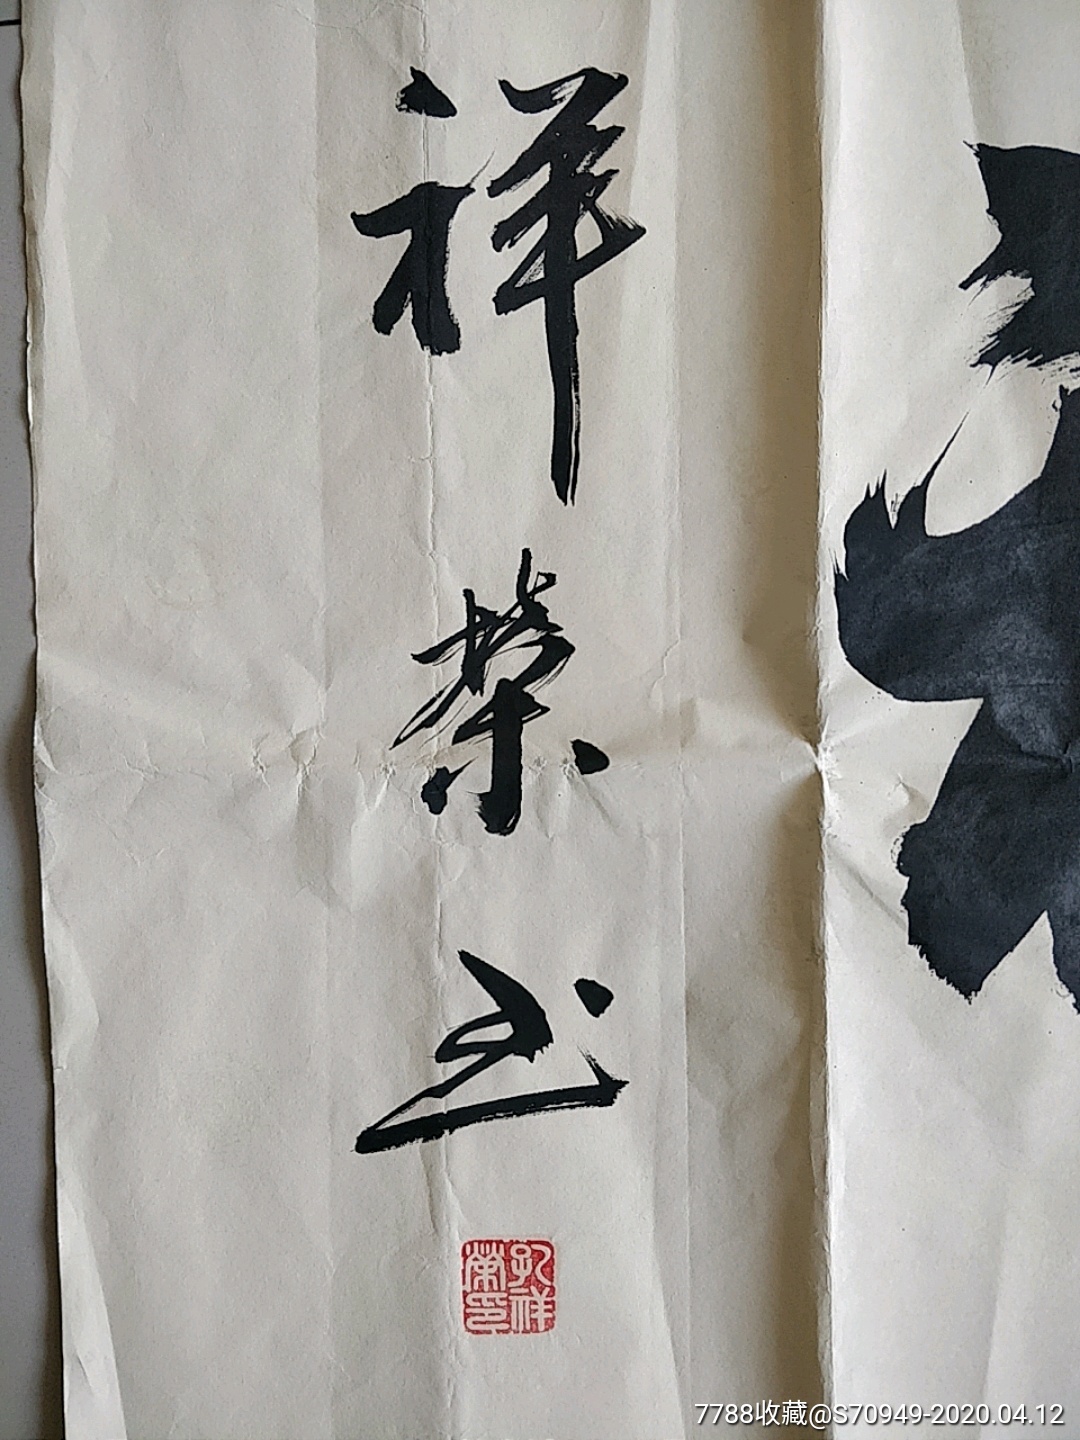 祥荣书
孔祥
榮印
7788收藏@S70949-2020.04.12